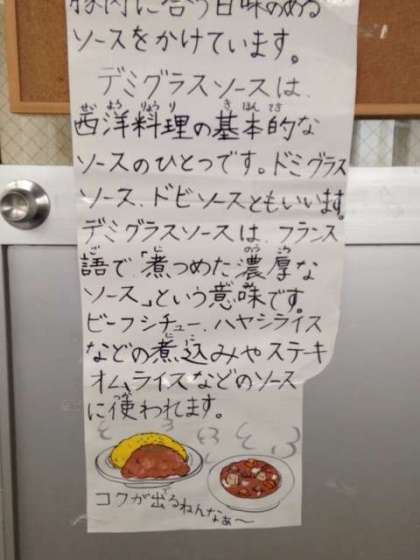 豚肉に合う甘味のある
ソースをかけています。
デミグラスソースは、
西洋料理の基本的な
ソースのひとつです。ドミグラス
ソース、ドビソースともいいます。
デミグラスソースは、フランス
語で「煮つめた濃厚な
ソース」という意味です。
ビーフシチュー、ハヤシライス
などの煮込みやステキ
オムライスなどのソース
に使われます。
コクが出るねんなぁ〜